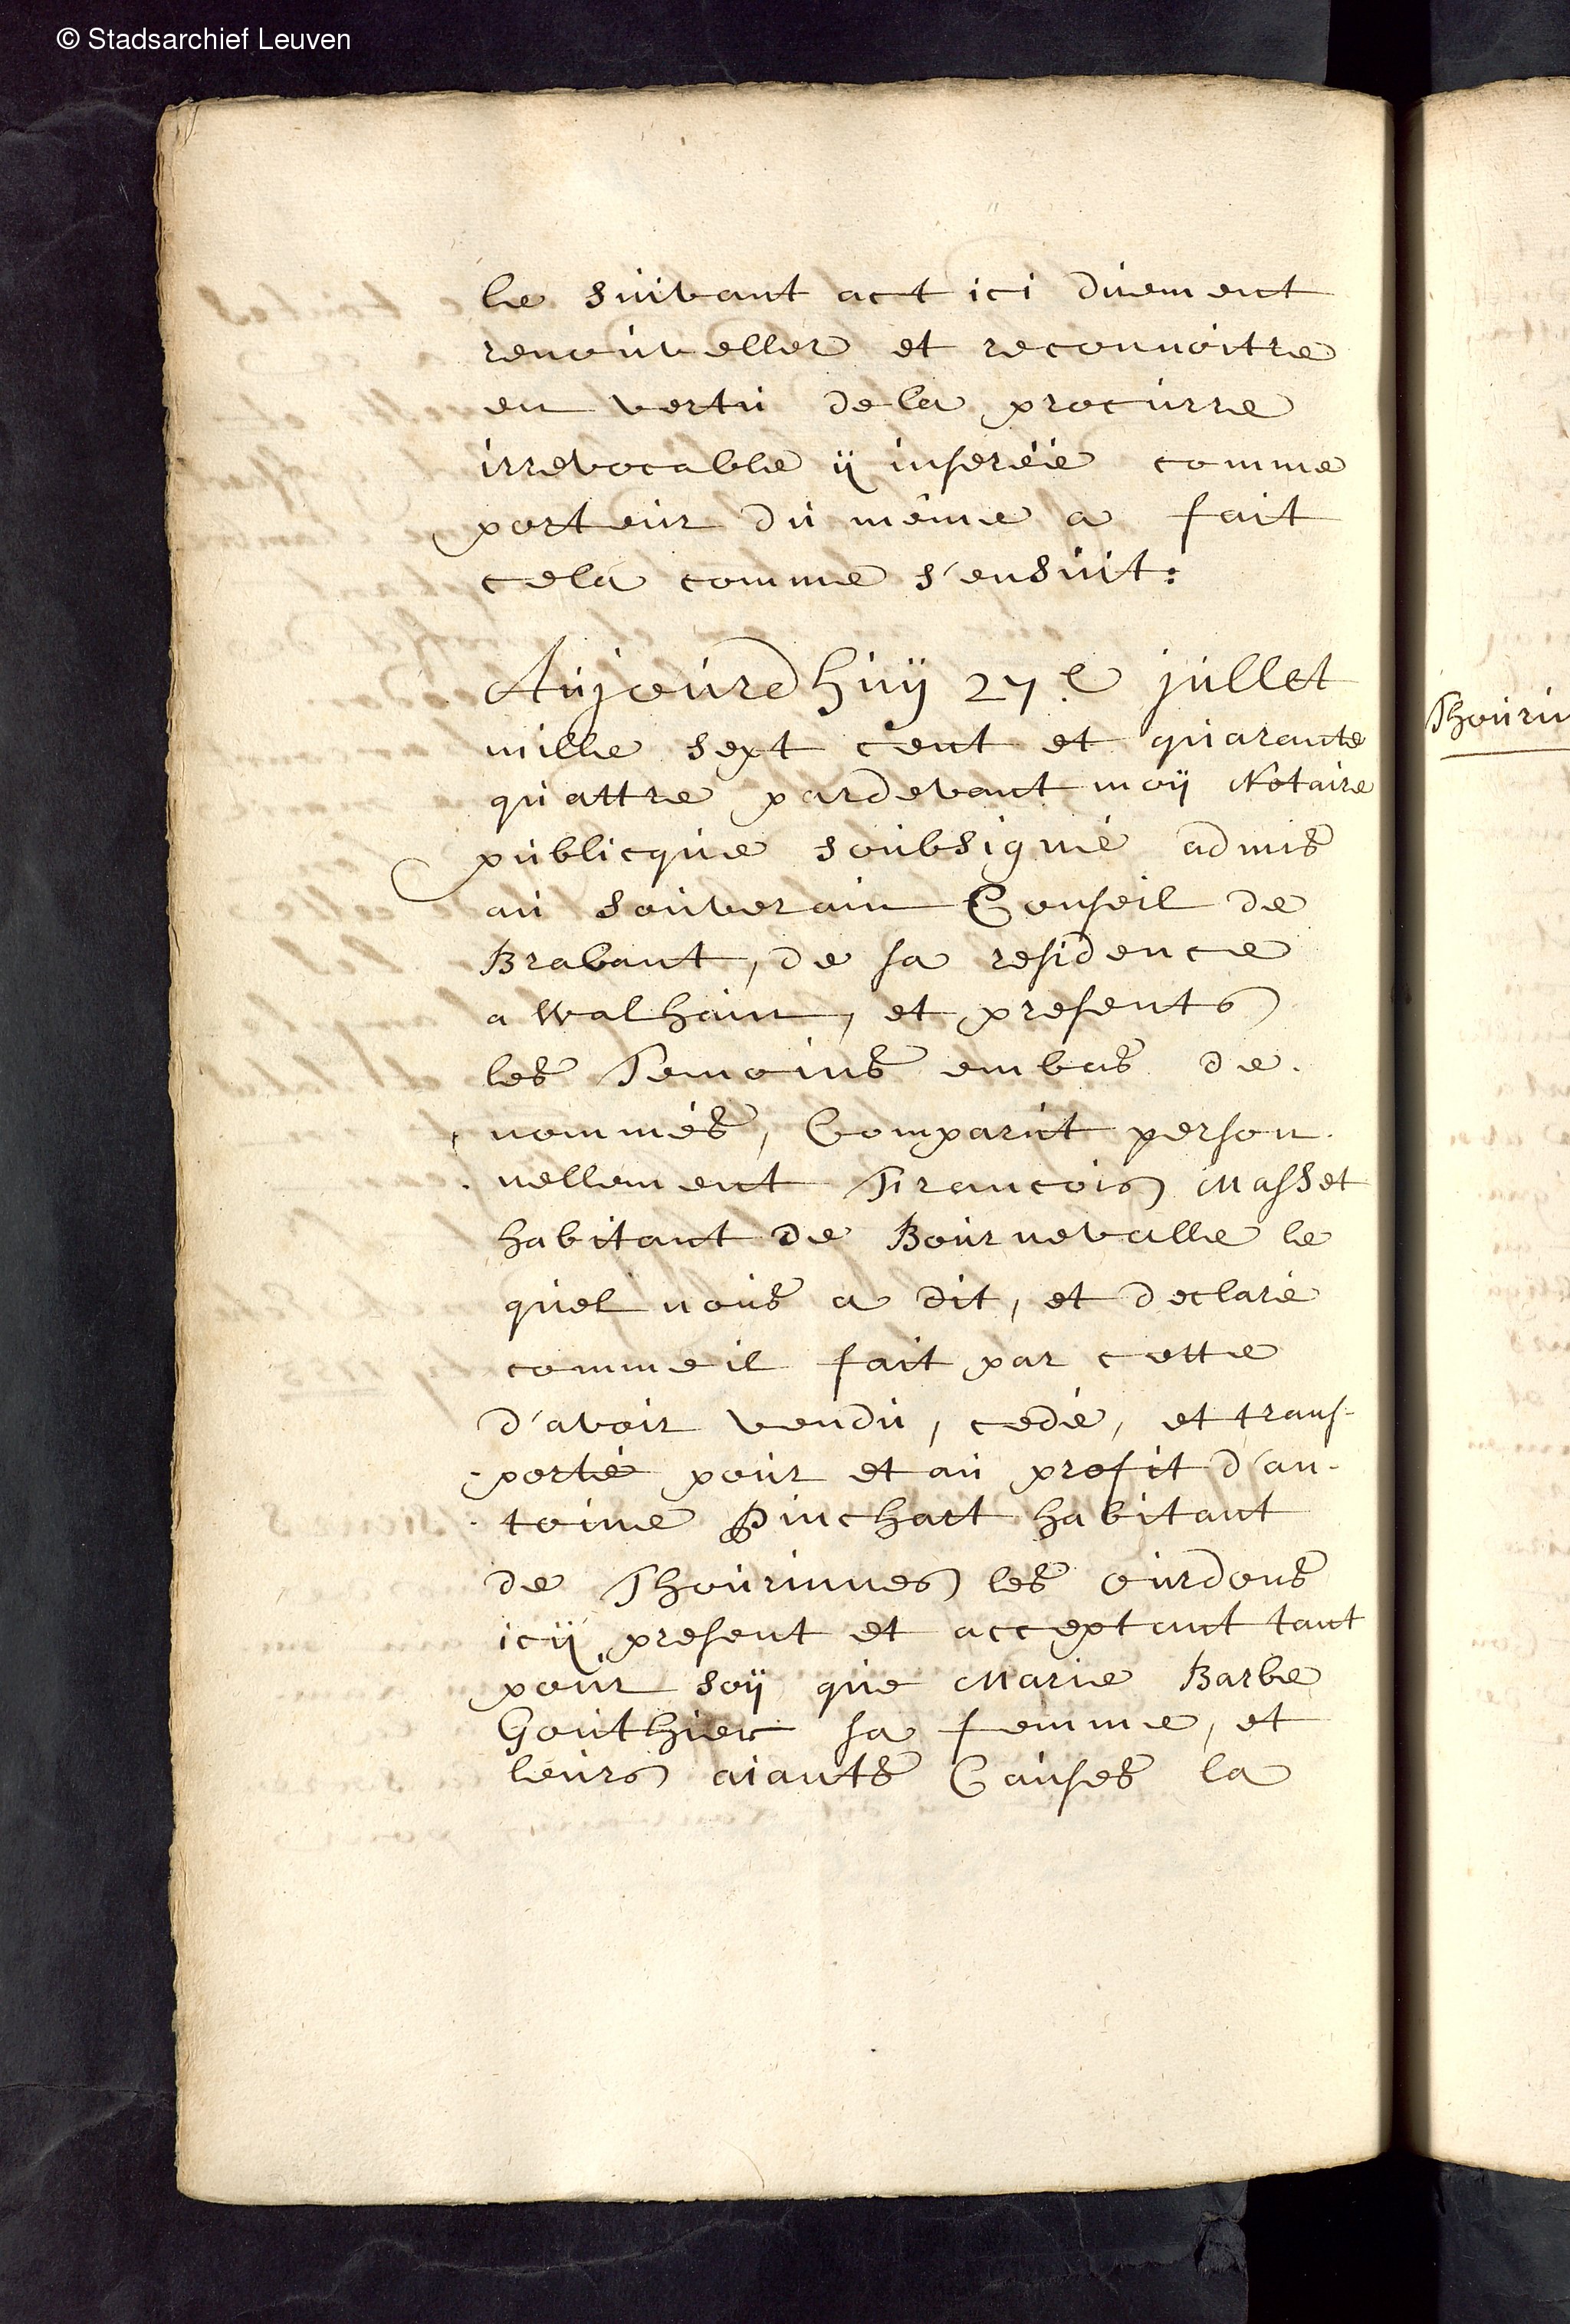 © Stadsarchief Leuven
le suivant act ici duement
renouveller et reconnoitre
en vertu dela procurre
irrevocable ÿ inserée comme
porteur du même a fait
cela comme s'ensuit:
Aujourdhuÿ 27.e jullet
mille sept cent et quarante
quattre pardevant moÿ Notaire
publicque soubsigné admis
au souverain Conseil de
Brabant, de sa residence
a Walhain, et presents
les Temoins embas de.
nommés, Comparut person.
nellement Francois Masset
habitant de Bournevalle le
quel nous a dit, et declaré
comme il fait par cette
d'avoir vendu, cedé, et trans-
-porté pour et au profit d'an-
-toine Pinchart habitant
de Thourinnes les ourdons
icÿ present et acceptant tant
pour soÿ que Marie Barbe
Gouthier sa femme, et
leurs aiants Causes la
Thourin